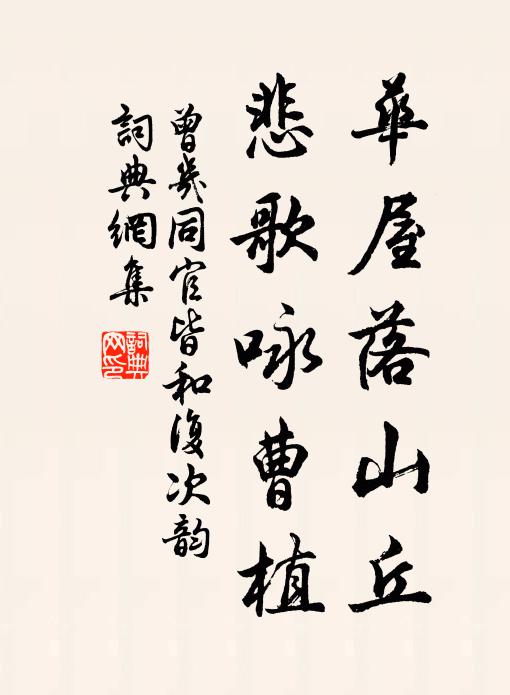 華屋落山丘
悲歌咏曹植
曾幾同官皆和復次韵
詞典網集
詞典网印